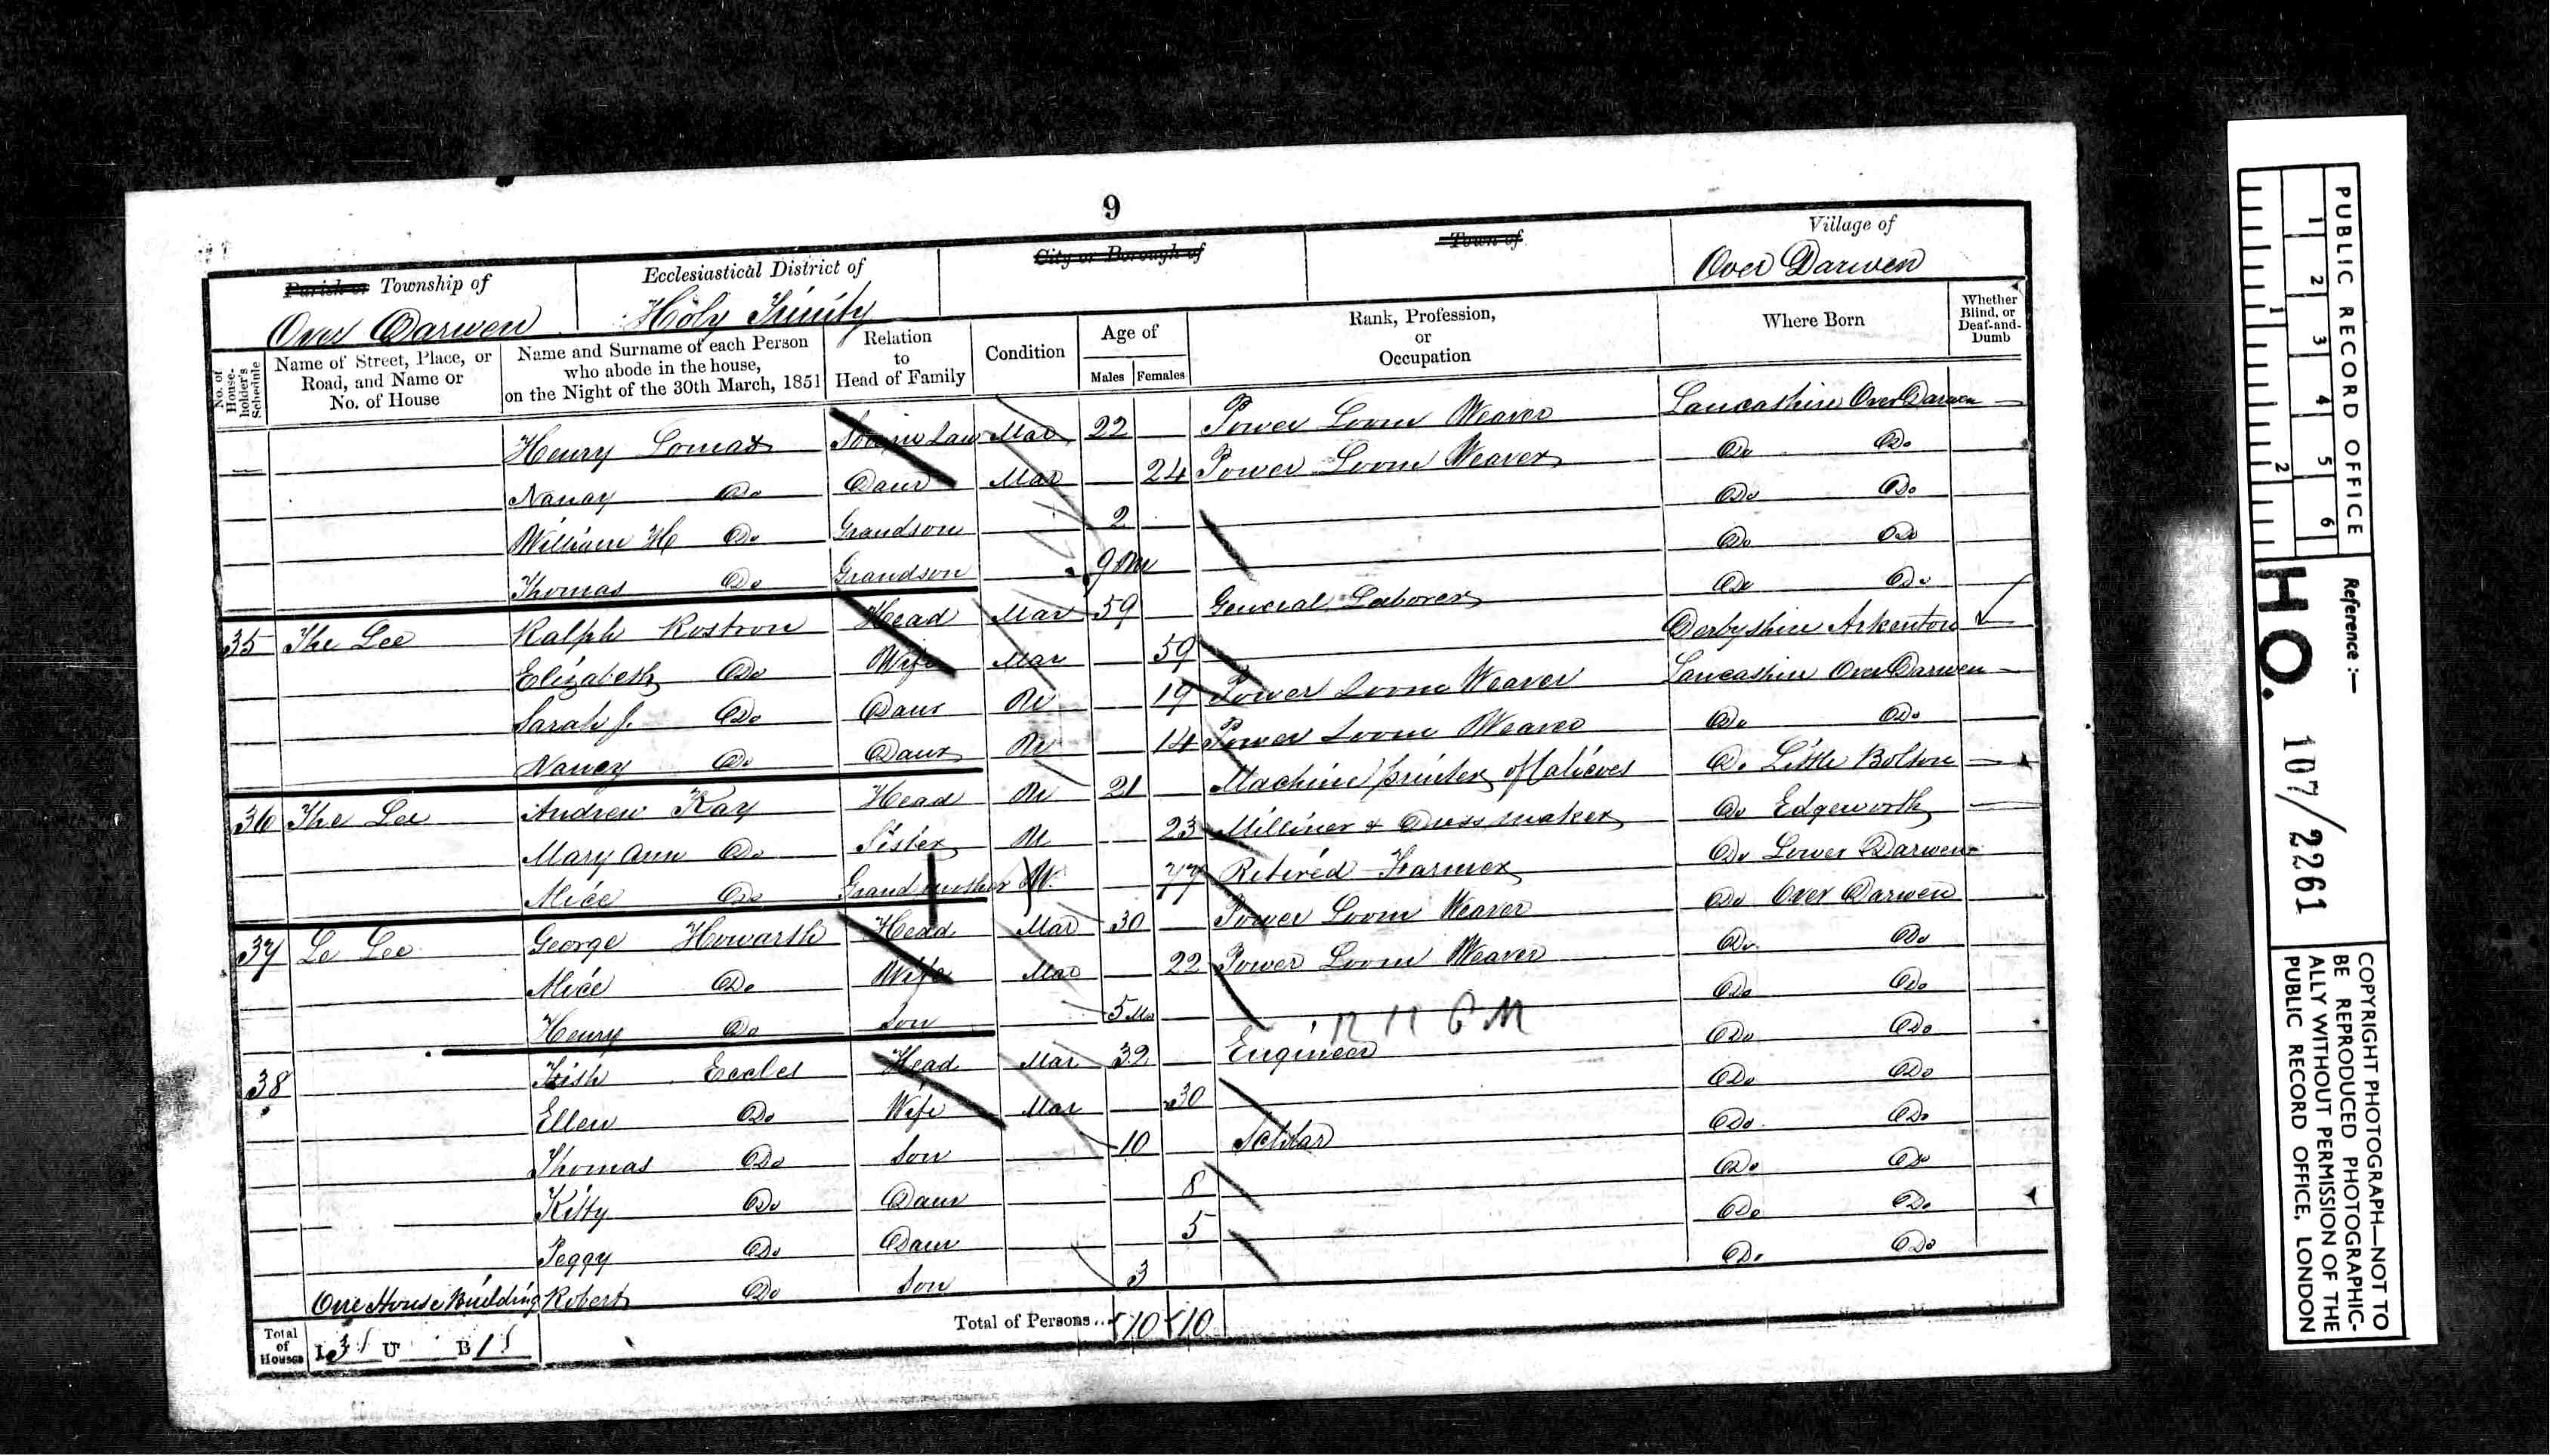 9
Parish or Township of
Over Darwen
Ecclesiastical District of
Holy Trinity
City or Borough of
Town of
Village of
Over Darwen
No. of House-holder's Schedule
Name of Street, Place, or Road, and Name or No. of House
Name and Surname of each Person who abode in the house, on the Night of the 30th March, 1851
Relation to Head of Family
Condition
Age of
Males Females
Rank, Profession, or Occupation
Where Born
Whether Blind, or Deaf-and-Dumb
Henry Lomax Son in Law Mar 22 Power Loom Weaver Lancashire Over Darwen
Nancy Do Daur Mar 24 Power Loom Weaver Do Do
William H Do Grandson 2 Do Do
Thomas Do Grandson 9 Do Do
35 The Lee Ralph Rostron Head Mar 59 General Laborer Do Do
Elizabeth Do Wife Mar 59 Derbyshire
Sarah J. Do Daur 19 Power Loom Weaver Lancashire Over Darwen
Nancy Do Daur 14 Power Loom Weaver Do Do
36 The Lee Andrew Kay Head 21 Machine printer of Calicoes Do Little Bolton
Mary Ann Do Sister 23 Milliner & Dress maker Do Edgeworth
Alice Do Grandmother W. 77 Retired Farmer Do Lower Darwen
37 Lee George Howarth Head Mar 30 Power Loom Weaver Do Over Darwen
Alice Do Wife Mar 22 Power Loom Weaver Do Do
Henry Do Son 5 Mo Do Do
38 Eccles Head Mar 32 Engineer Do Do
Ellen Do Wife Mar 30 Do Do
Thomas Do Son 10 Scholar Do Do
Kitty Do Daur 8 Do Do
Peggy Do Daur 5 Do Do
One House Building Robert Do Son 3 Do Do
Total of Houses I 3 U B 1
Total of Persons... 10 10
PUBLIC RECORD OFFICE
1 2 3 4 5 6
1 2
Reference :—
HO. 107/2261
COPYRIGHT PHOTOGRAPH—NOT TO
BE REPRODUCED PHOTOGRAPHIC-
ALLY WITHOUT PERMISSION OF THE
PUBLIC RECORD OFFICE, LONDON